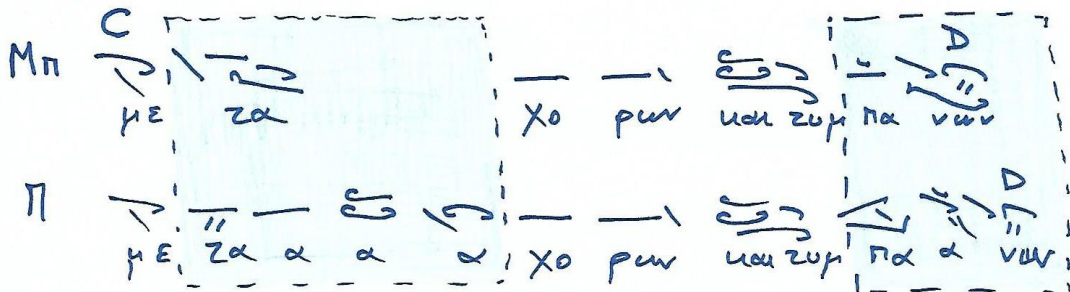 C D
Μπ
με τα χο ρων και τυμ πα νων
Π D
με τα α α α χο ρων και τυμ πα α νων